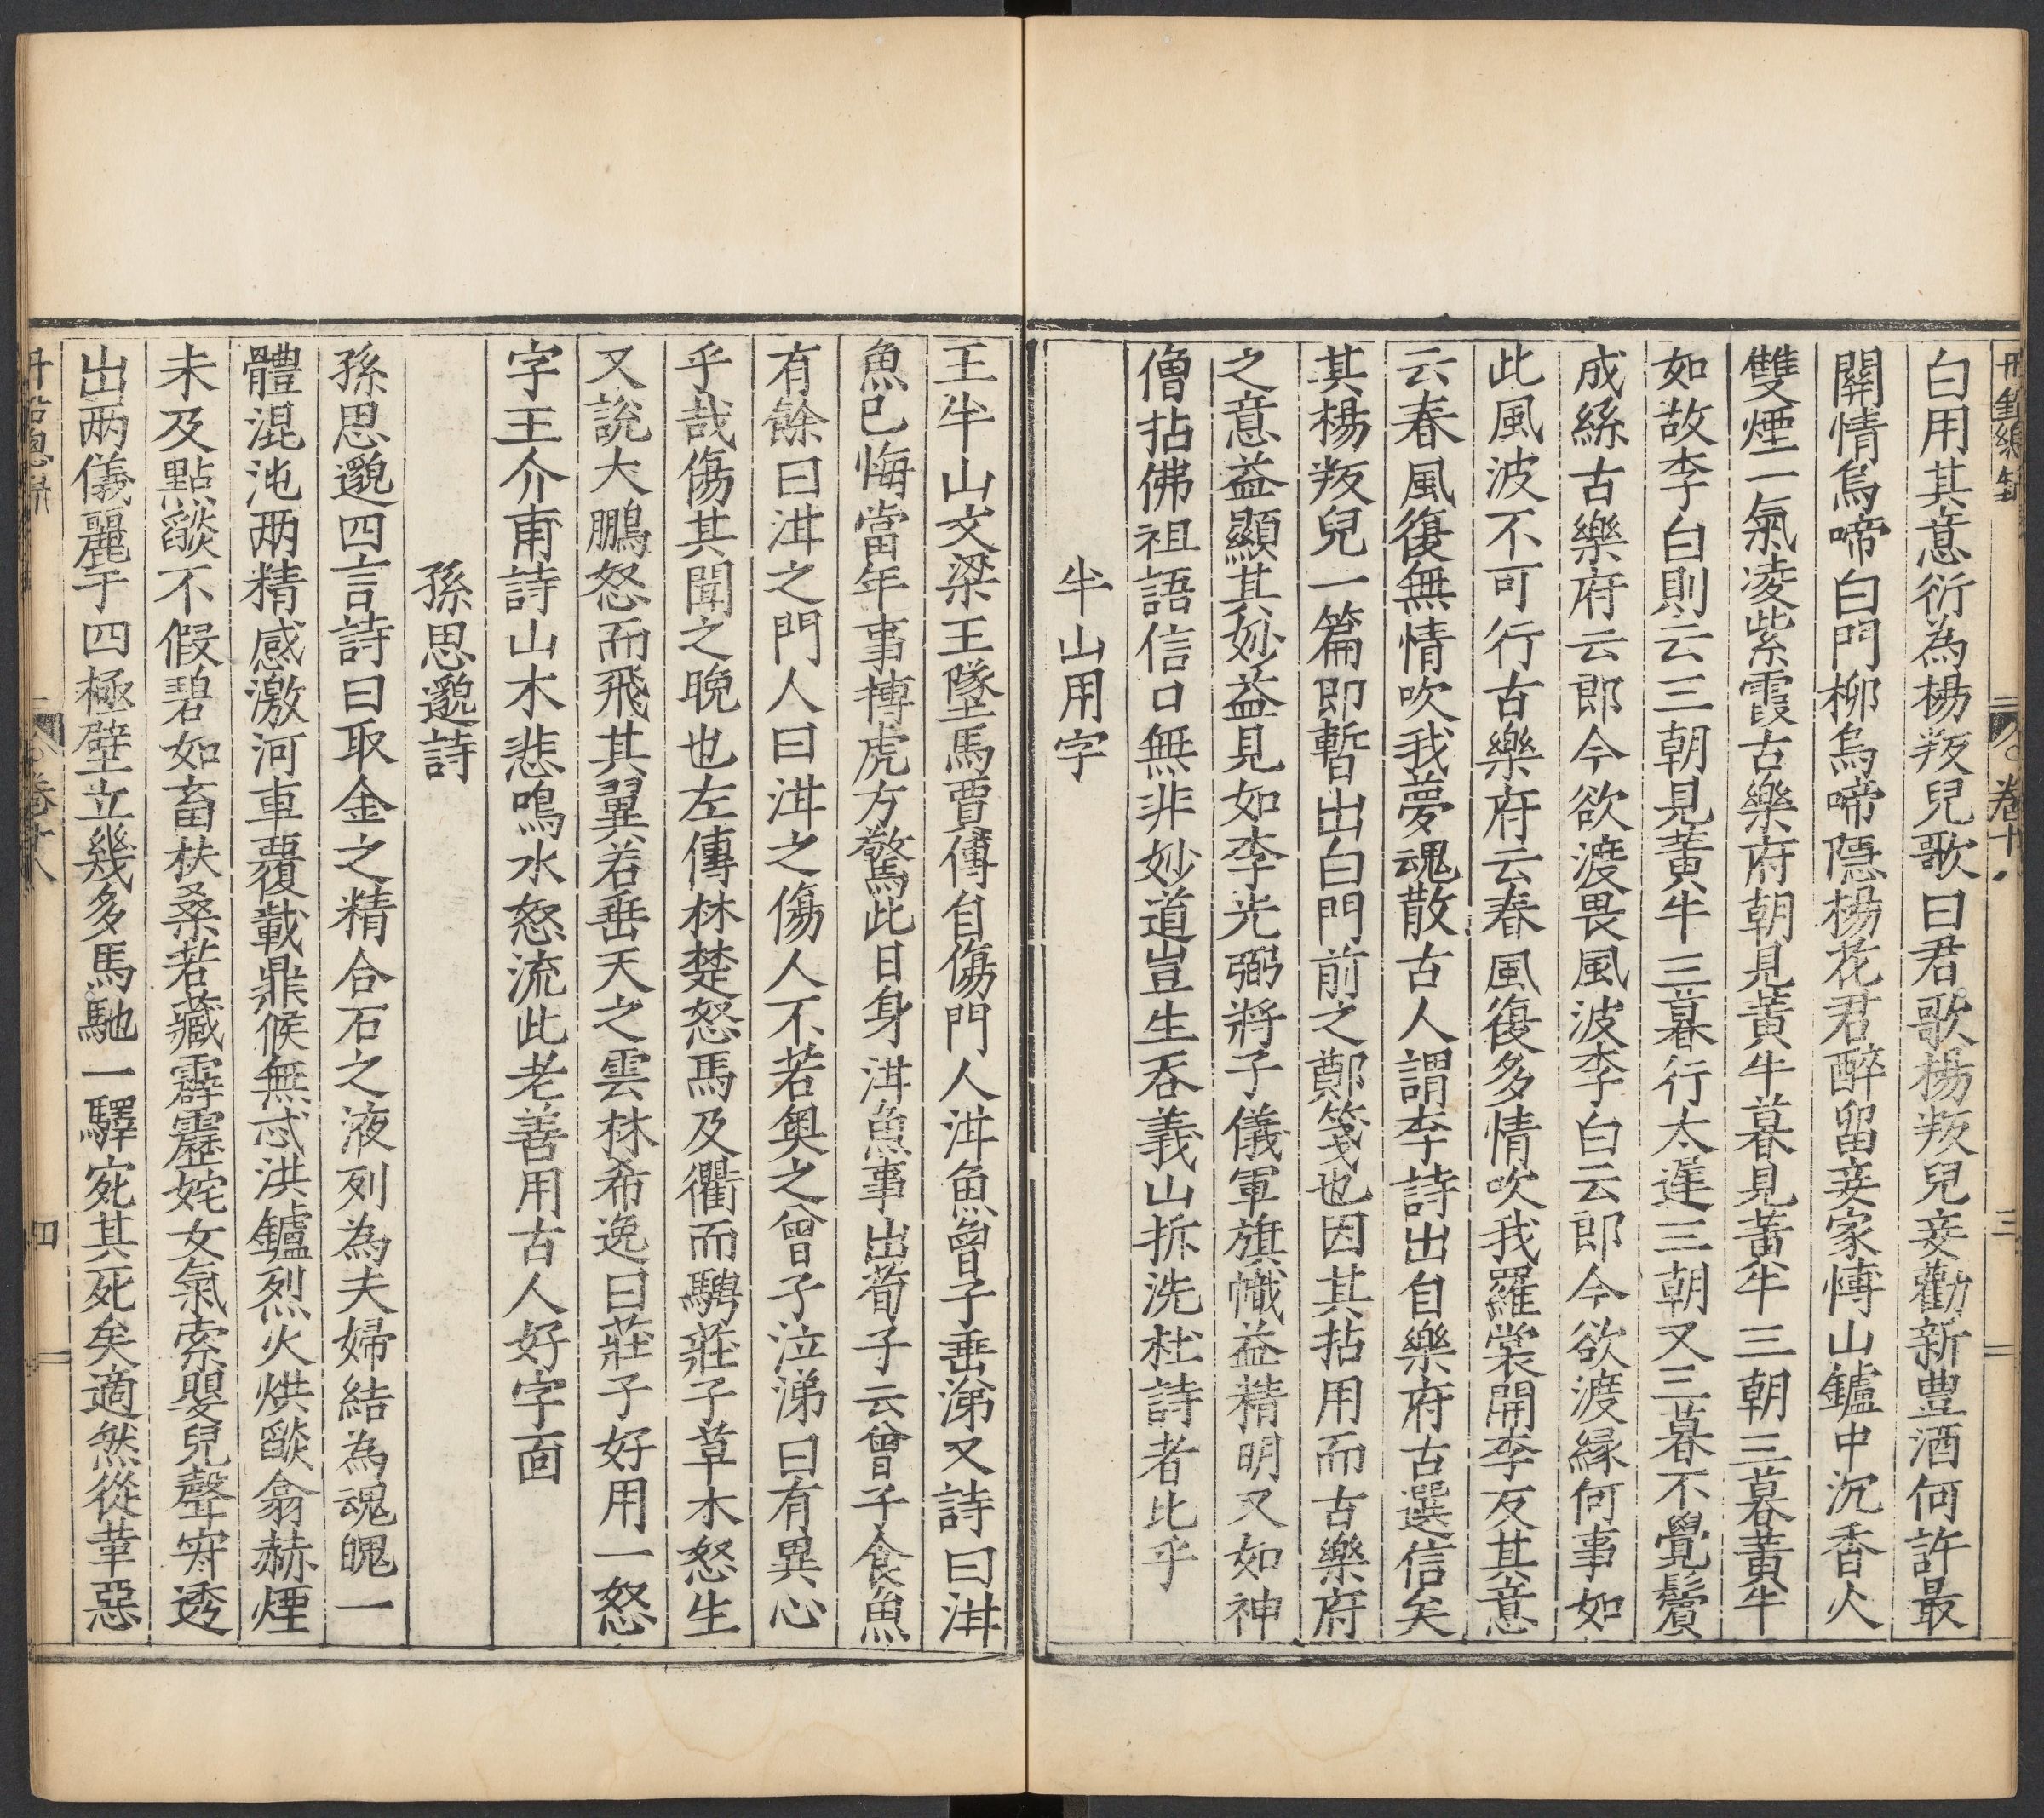 丹鉛總錄
卷十八
三
白用其意衍為楊叛兒歌曰君歌楊叛兒妾勸新豊酒何許最
關情烏啼白門柳烏啼隱楊花君醉留妾家愽山鑪中沉香火
雙煙一氣凌紫霞古樂府朝見黃牛暮見黃牛三朝三暮黃牛
如故李白則云三朝見黃牛三暮行太遲三朝又三暮不覺鬢
成絲古樂府云郎今欲渡畏風波李白云郎今欲渡緣何事如
此風波不可行古樂府云春風復多情吹我羅裳開李反其意
云春風復無情吹我夢魂散古人謂李詩出自樂府古選信矣
其楊叛兒一篇即暫出白門前之鄭箋也因其拈用而古樂府
之意益顯其妙益見如李光弼將子儀軍旗幟益精明又如神
僧拈佛祖語信口無非妙道豈生吞義山拆洗杜詩者比乎
半山用字
王半山文梁王墜馬賈傅自傷門人泔魚曾子垂涕又詩曰泔
魚已悔當年事摶虎方驚此日身泔魚事出荀子云曾子食魚
有餘曰泔之門人曰泔之傷人不若奧之曾子泣涕曰有異心
乎哉傷其聞之晚也左傳林楚怒馬及衢而騁莊子草木怒生
又說大鵬怒而飛其翼若垂天之雲林希逸曰莊子好用一怒
字王介甫詩山木悲鳴水怒流此老善用古人好字面
孫思邈詩
孫思邈四言詩曰取金之精合石之液列為夫婦結為魂魄一
體混沌兩精感激河車覆載鼎候無忒洪鑪烈火烘燄翕赫煙
未及黔燄不假碧如畜扶桑若藏霹靂姹女氣索嬰兒聲寂透
出兩儀麗于四極壁立幾多馬馳一驛宛其死矣適然從革惡
丹鉛總錄
卷十八
四